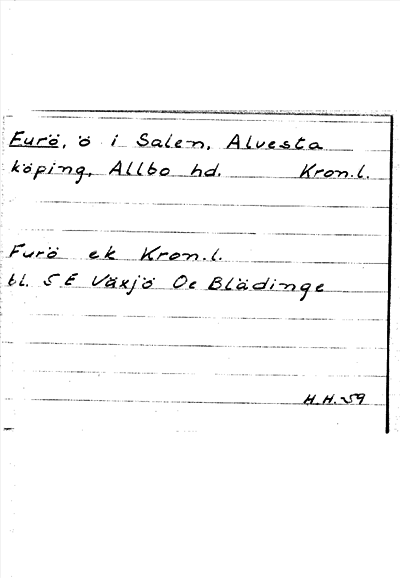 Furö, ö i Salen, Alvesta
köping, Allbo hd. Kron.l.
Furö ek Kron.l.
bl. 5 E Växjö Oe Blädinge
H.H. 59